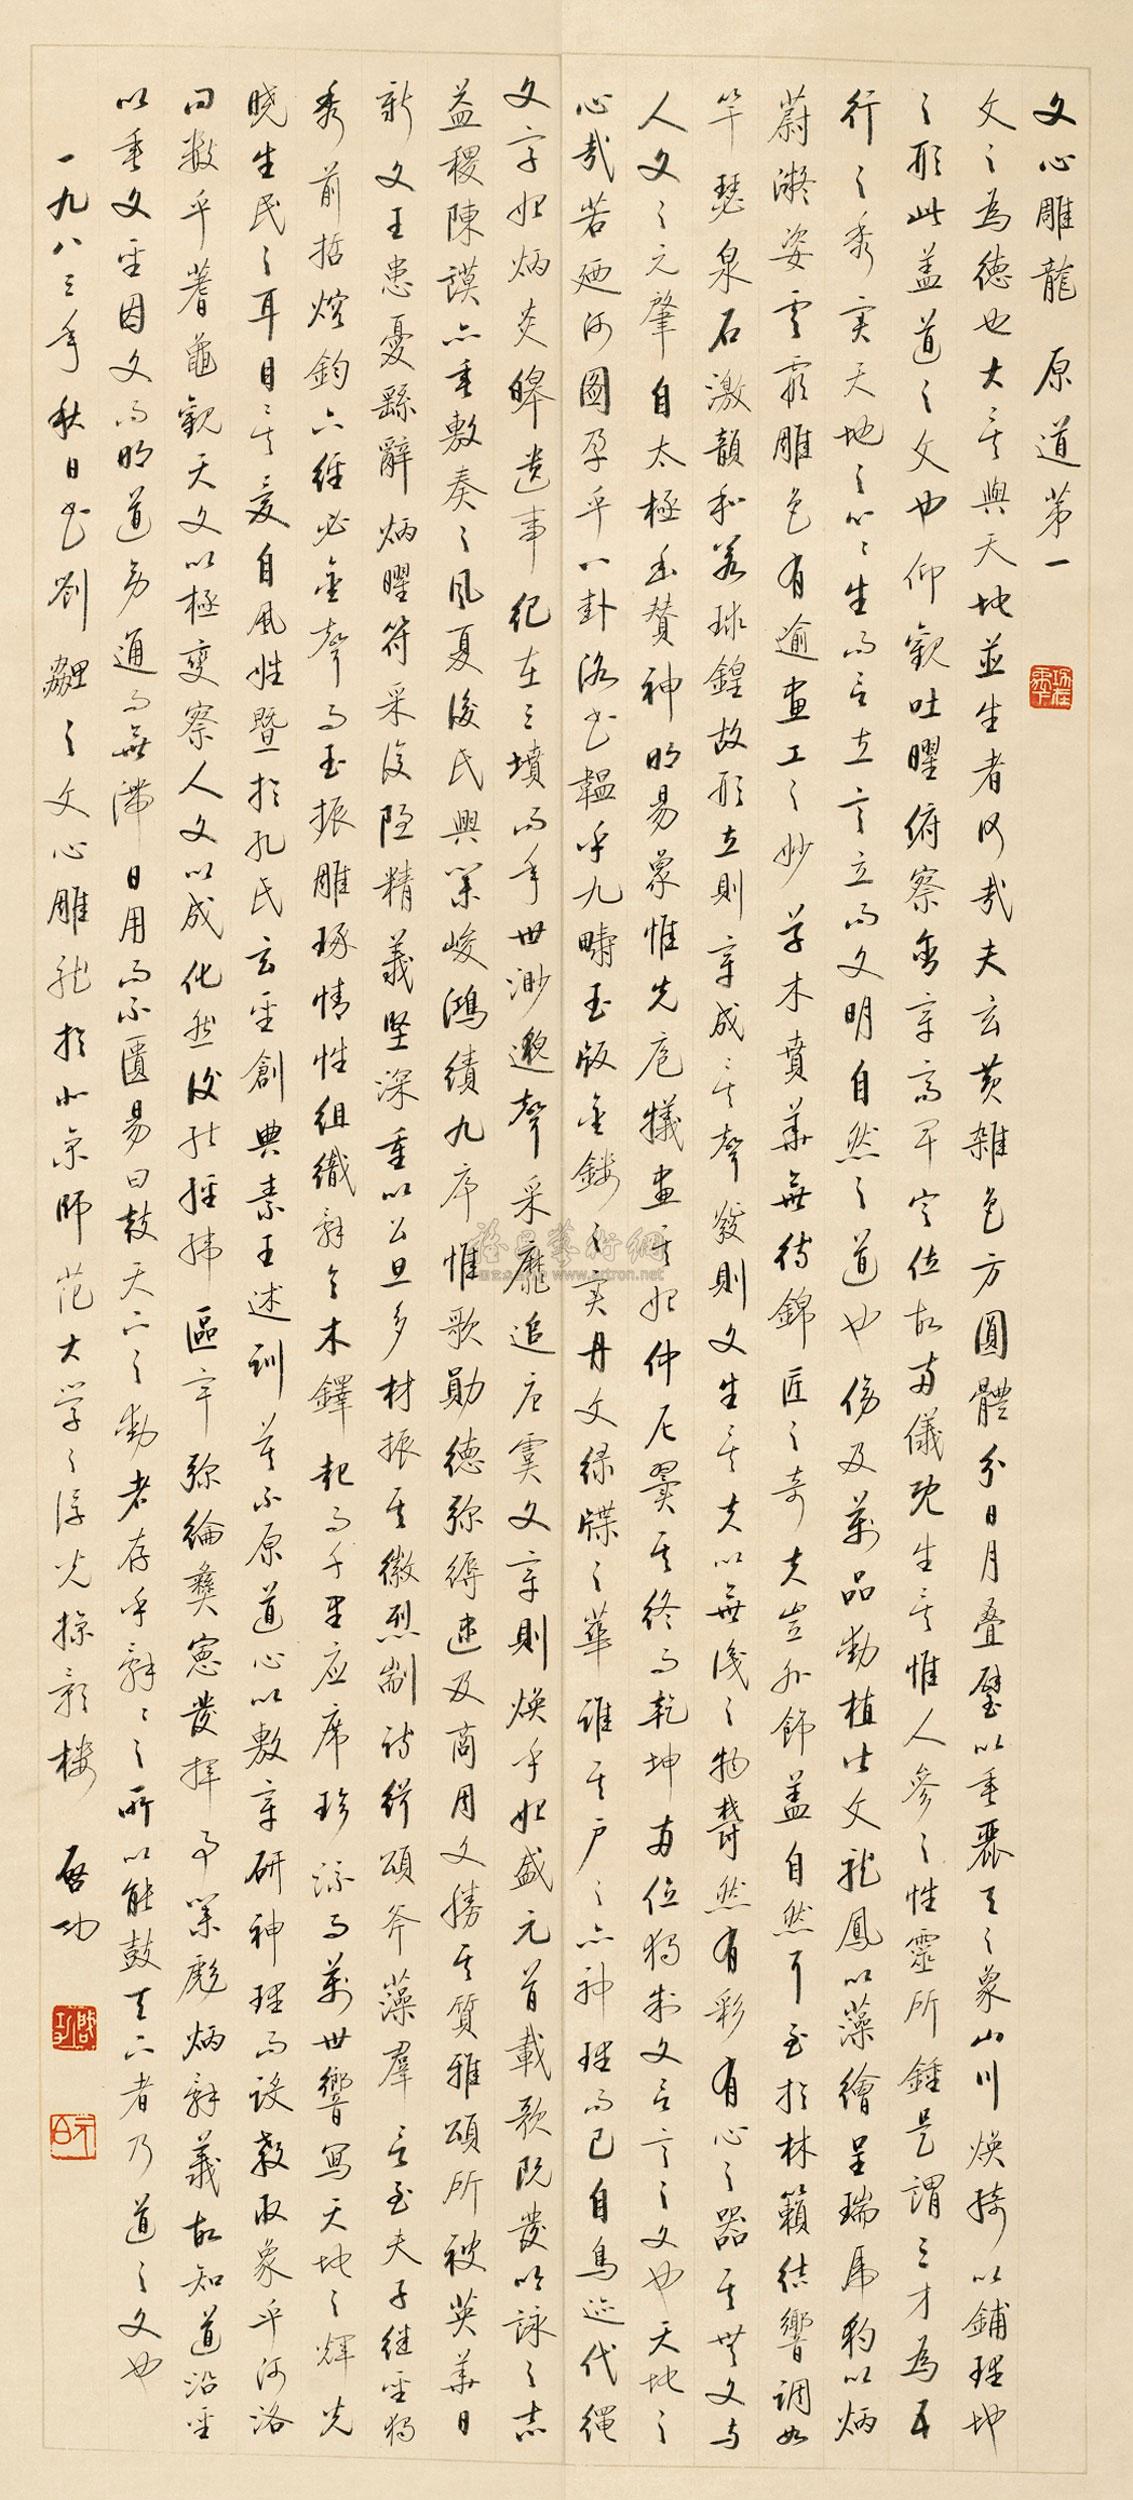 文心雕龍 原道第一
文之為德也大矣與天地並生者何哉夫玄黃雜色方圓體分日月疊璧以垂麗天之象山川煥綺以鋪理地
之形此蓋道之文也仰觀吐曜俯察含章高卑定位故兩儀既生矣惟人參之性靈所鍾是謂三才為五
行之秀實天地之心〻生而言立言立而文明自然之道也傍及萬品動植皆文龍鳳以藻繪呈瑞虎豹以炳
蔚凝姿雲霞雕色有逾畫工之妙草木賁華無待錦匠之奇夫豈外飾蓋自然耳至於林籟結響調如
竽瑟泉石激韻和若球鍠故形立則章成矣聲發則文生矣夫以無識之物鬱然有彩有心之器其無文與
人文之元肇自太極幽贊神明易象惟先庖犧畫其始仲尼翼其終而乾坤兩位獨制文言言之文也天地之
心哉若迺河圖孕乎八卦洛書韞乎九疇玉版金鏤之實丹文綠牒之華誰其尸之亦神理而已自鳥迹代繩
文字始炳炎皞遺事紀在三墳而年世渺邈聲采靡追唐虞文章則煥乎始盛元首載歌既發吟詠之志
益稷陳謨亦垂敷奏之風夏後氏興業峻鴻績九序惟歌勛德彌縟逮及商周文勝其質雅頌所被英華日
新文王患憂繇辭炳曜符采複隱精義堅深重以公旦多材振其徽烈制詩緝頌斧藻群言至夫子繼聖獨
秀前哲熔鈞六經必金聲而玉振雕琢情性組織辭令木鐸起而千里應席珍流而萬世響寫天地之輝光
曉生民之耳目矣爰自風姓暨於孔氏玄聖創典素王述訓莫不原道心以敷章研神理而設教取象乎河洛
問數乎蓍龜觀天文以極變察人文以成化然後能經緯區宇彌綸彝憲發揮事業彪炳辭義故知道沿聖
以垂文聖因文而明道旁通而無滯日用而不匱易曰鼓天下之動者存乎辭〻之所以能鼓天下者乃道之文也
一九八三年秋日書劉勰之文心雕龍於北京師範大學之浮光掠影樓 啟功
啟功
元白
雅昌藝術網
www.artron.net